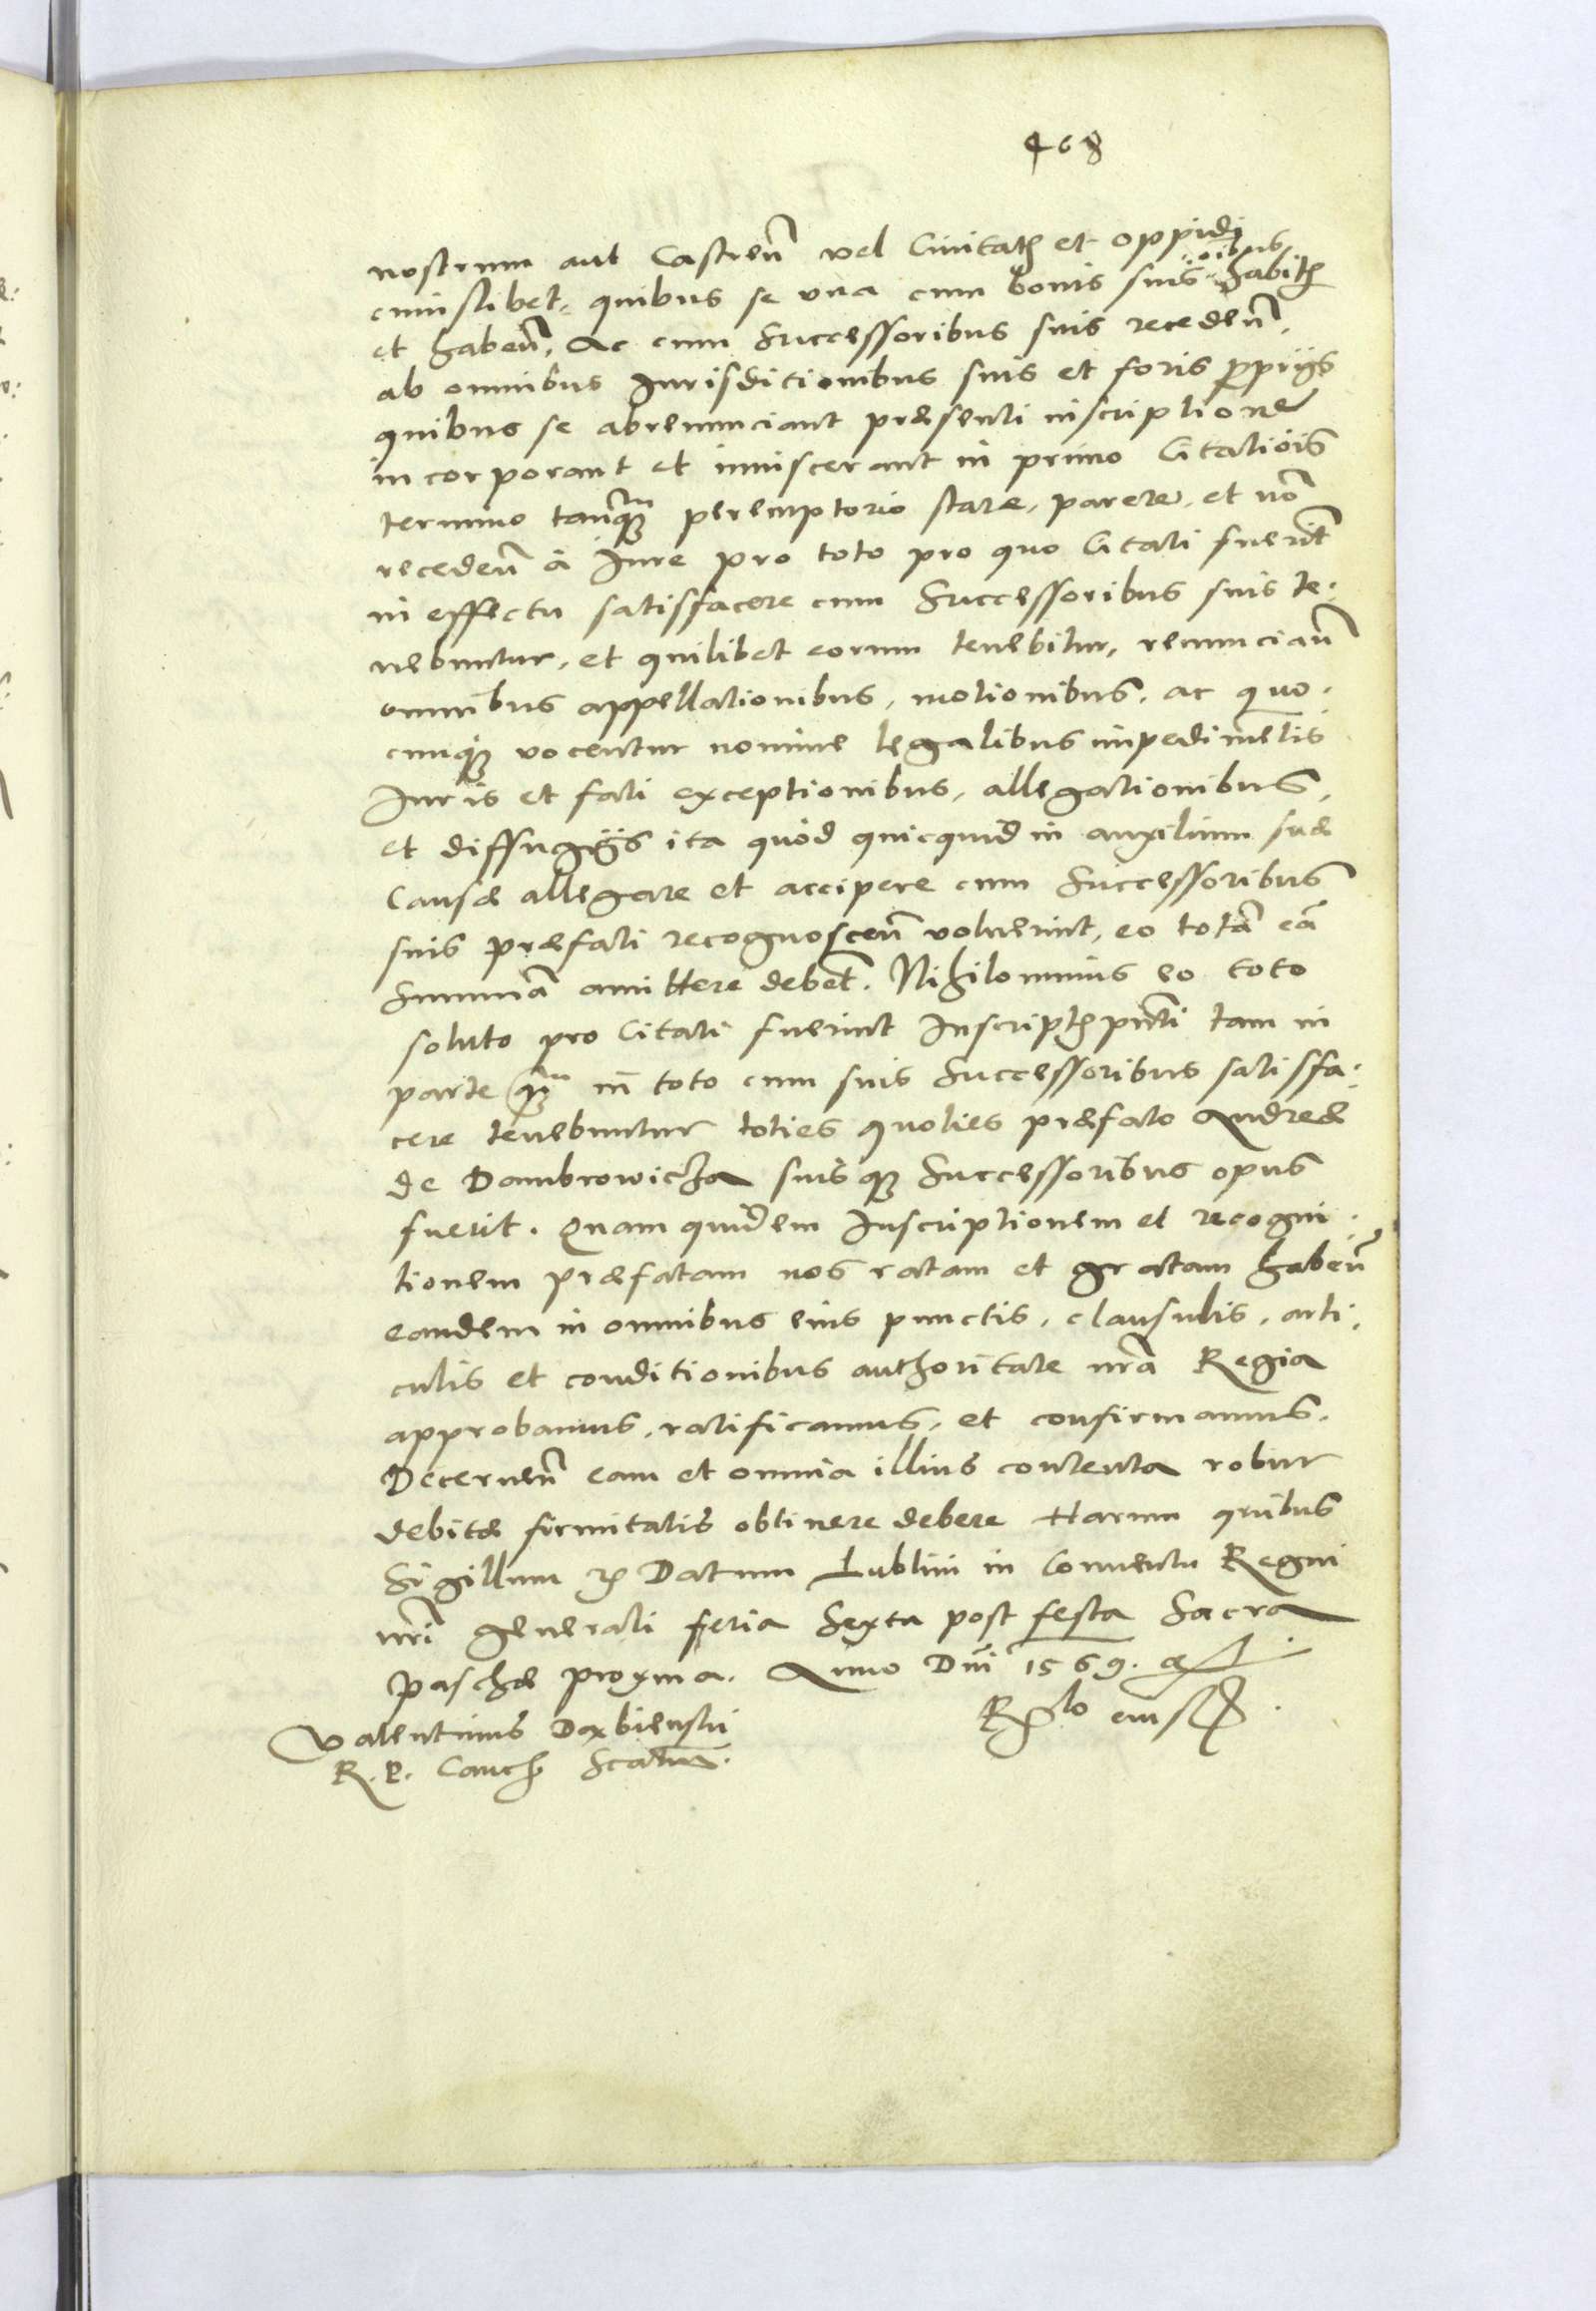 468
nostrum aut Castren̄ vel Civitatꝭ et oppidi
cuiuslibet, quibus se vna cum bonis suis oibus habitꝭ
et haben̄, Ac cum Successoribus suis receden̄,
ab omnibus Jurisditionibus suis et foris ꝓpriis
quibus se abrenunciant præsenti inscriptione
incorporant et inuiscerant in primo Citatiōis
termino tanq̄uam peremptorio stare, parere, et nō
receden̄ à Jure pro toto pro quo Citati fuerīt
in effectu satisfacere cum Successoribus suis te:
nebuntur, et quilibet eorum tenebitur, renuncian̄
omnibus appellationibus, motionibus, ac quo:
cunqꝫ vocentur nomine legalibus impedimētis
Juris et fati exceptionibus, allegationibus,
et diffugiis ita quòd quicquid in auxilium suæ
Causæ allegare et accipere cum Successoribus
suis præfati recognoscen̄ voluerint, eo totā eā
Summā amittere debēt. Nihilominus eo toto
soluto pro Citati fuerint Inscriptꝭ pn̄ti tam in
parte qꝫm in toto cum suis Successoribus satisfa:
cere tenebuntur toties quoties præfato Andreæ
de Dambrowicza suisqꝫ Successoribus opus
fuerit. Quam quidem Inscriptionem et recogni:
tionem præfatam nos ratam et gratam haben̄
eandem in omnibus eius punctis, clausulis, arti:
culis et conditionibus authoritate nr̄a Regia
approbamus, ratificamus, et confirmamus,
Decernen̄ eam et omnia illius contenta robur
debitæ firmitatis obtinere debere Harum quibus
Sigillum ꝛc Datum Lublini in Conuentu Regni
nr̄i generali feria Sexta post festa Sacra
Paschæ proxma. Anno Dn̄i 1569.
Valentinus Dembienski
R. P. Cancꝭ